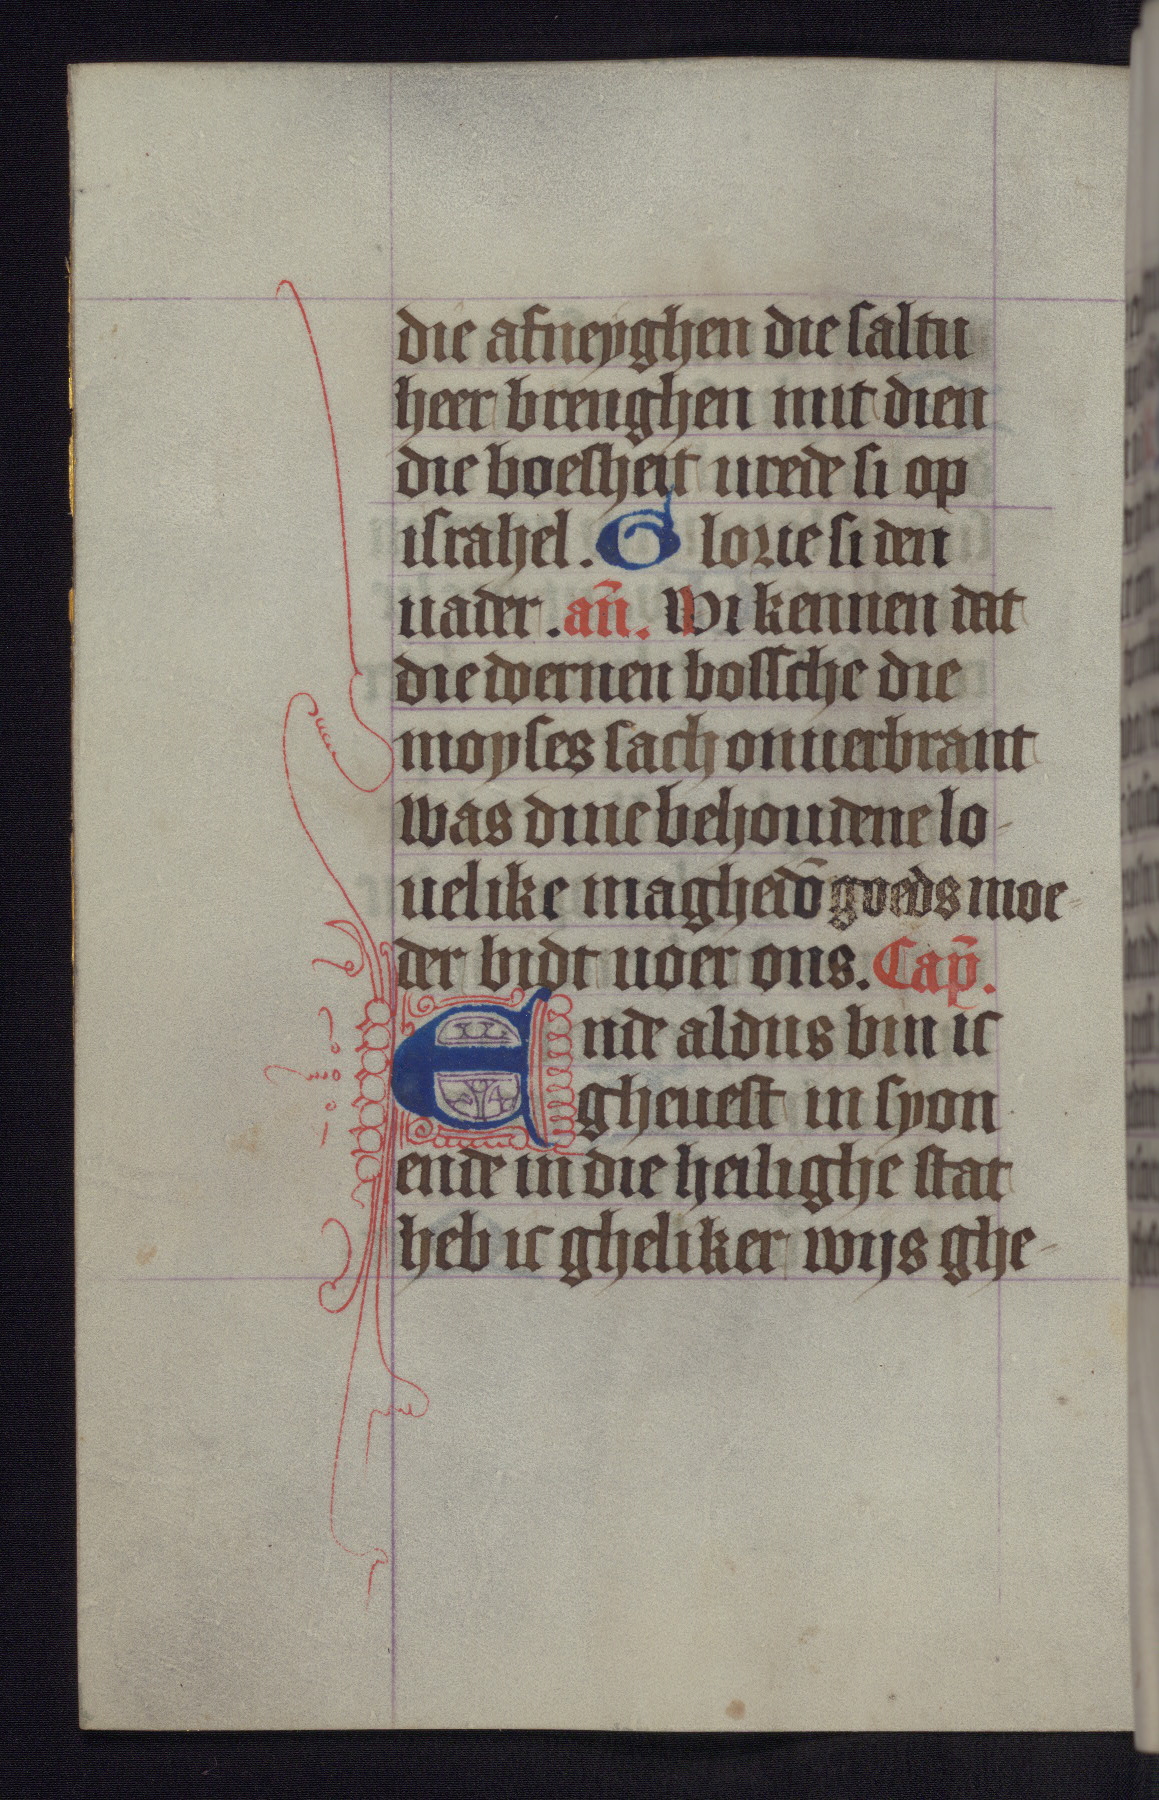 die afneyghen die saltu
heer brenghen mit dien
die boesheit urede si op
israhel. Glorie si den
uader. an̄. Wi kennen dat
die dernen bossche die
moyses sach onuerbrant
was dine behoudene lo-
uelike magheid̄ goeds moe-
der bidt uoer ons. Cap̄.
Ende aldus bin ic
gheuest in syon
ende in die heilighe stat
heb ic gheliker wijs ghe-